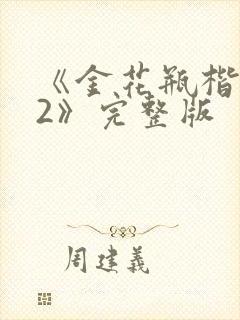 《金花瓶楷
2》完整版
周建義